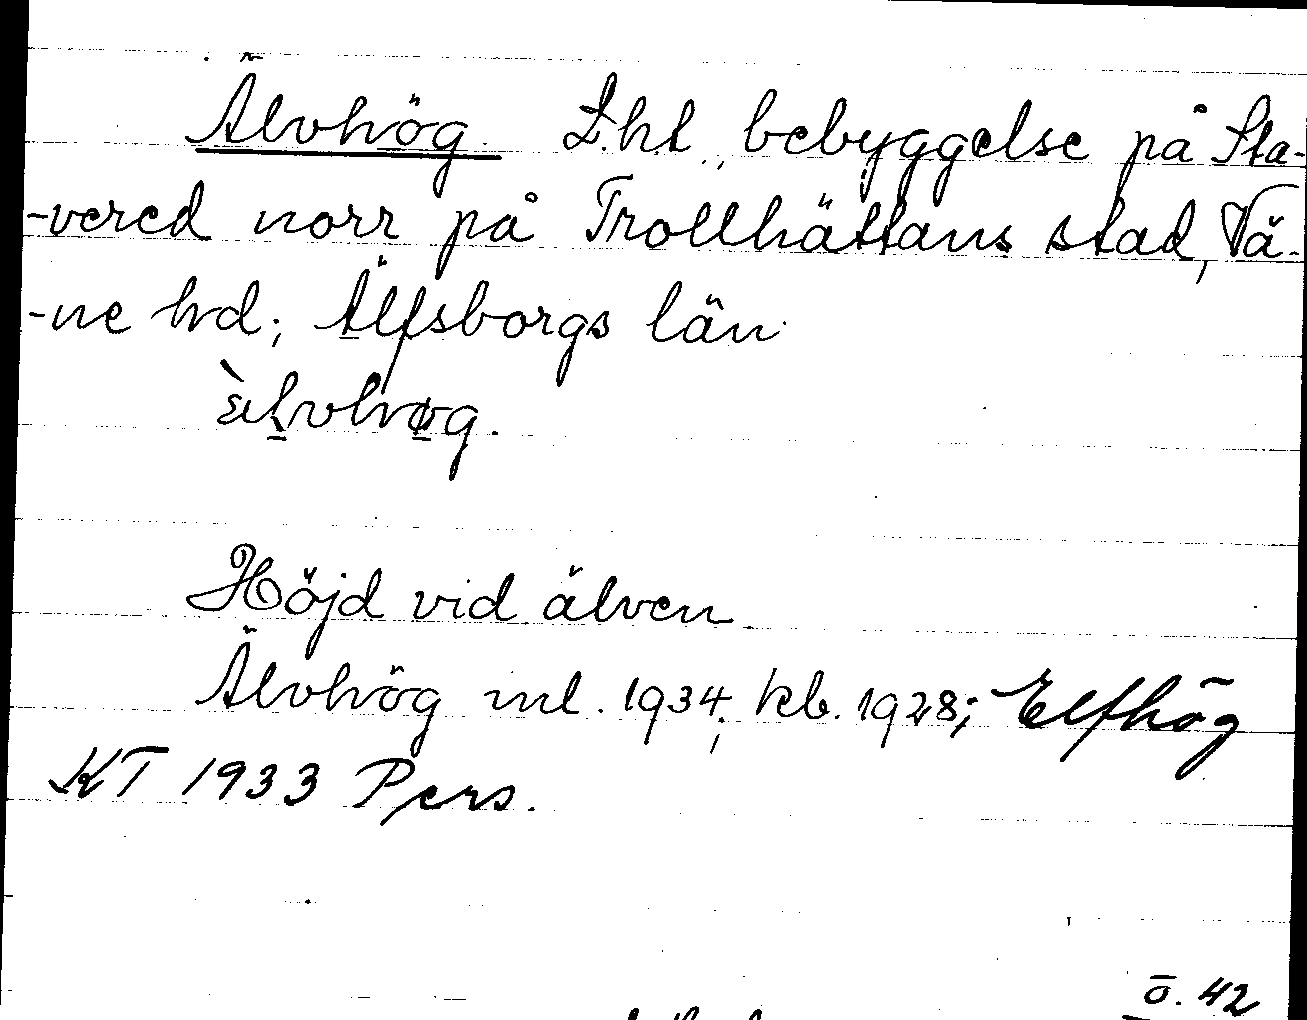 Älvhög. Lht., bebyggelse på Sta-
-vered norr på Trollhättans stad, Vä-
-ne hd; Älfsborgs län
Höjd vid älven
Älvhög ml. 1934; kb. 1928; Elfhög
KT 1933 Pers.
ö. 42